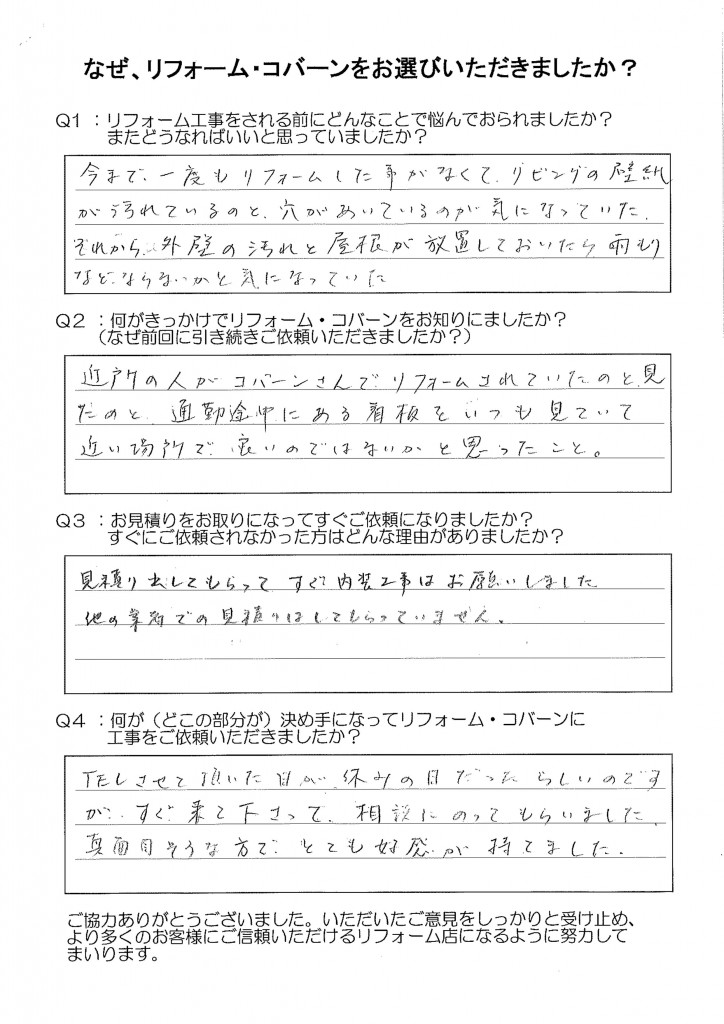 なぜ、リフォーム・コバーンをお選びいただきましたか？
Q1 ：リフォーム工事をされる前にどんなことで悩んでおられましたか？
またどうなればいいと思っていましたか？
今まで、一度もリフォームした事がなくて、リビングの壁紙
が汚れているのと、穴があいているのが気になっていた。
それから、外壁の汚れと屋根が放置しておいたら雨もり
など、ならないかと気になっていた
Q2 ：何がきっかけでリフォーム・コバーンをお知りにましたか？
（なぜ前回に引き続きご依頼いただきましたか？）
近所の人がコバーンさんでリフォームされていたのと、見
たのと、通勤途中にある看板をいつも見ていて
近い場所で、良いのではないかと思ったこと。
Q3 ：お見積りをお取りになってすぐご依頼になりましたか？
すぐにご依頼されなかった方はどんな理由がありましたか？
見積り出してもらって すぐ内装工事はお願いしました
他の業者での見積りはしてもらっていません。
Q4 ：何が（どこの部分が）決め手になってリフォーム・コバーンに
工事をご依頼いただきましたか？
TELさせて頂いた日が、休みの日だったらしいのです
が、すぐ来て下さって、相談にのってもらいました。
真面目そうな方で、とても好感が持てました。
ご協力ありがとうございました。いただいたご意見をしっかりと受け止め、
より多くのお客様にご信頼いただけるリフォーム店になるように努力して
まいります。